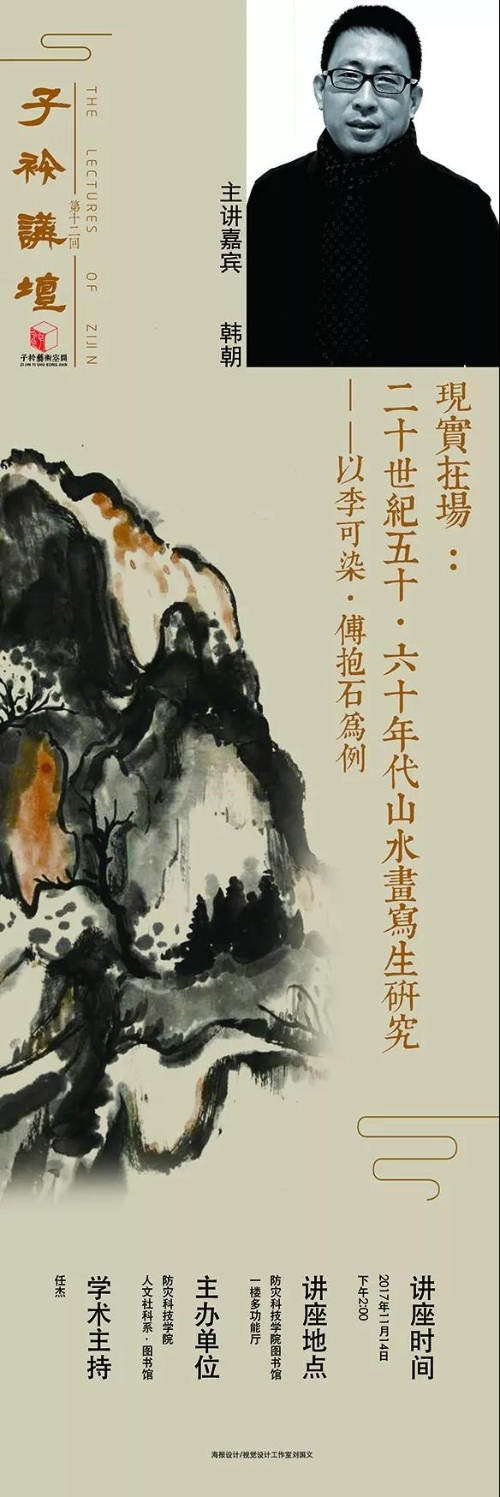 子衿講壇
第十二回
THE LECTURES OF ZIJIN
子衿藝術空間
ZI JIN YI SHU KONG JIAN
主讲嘉宾 韩朝
現實在場：
二十世紀五十·六十年代山水畫寫生研究
——以李可染·傅抱石爲例
讲座时间
2017年11月14日
下午2:00
讲座地点
防灾科技学院
一楼多功能厅
主办单位
防灾科技学院
人文社科系·图书馆
学术主持
任杰
海报设计/视觉设计工作室刘国文